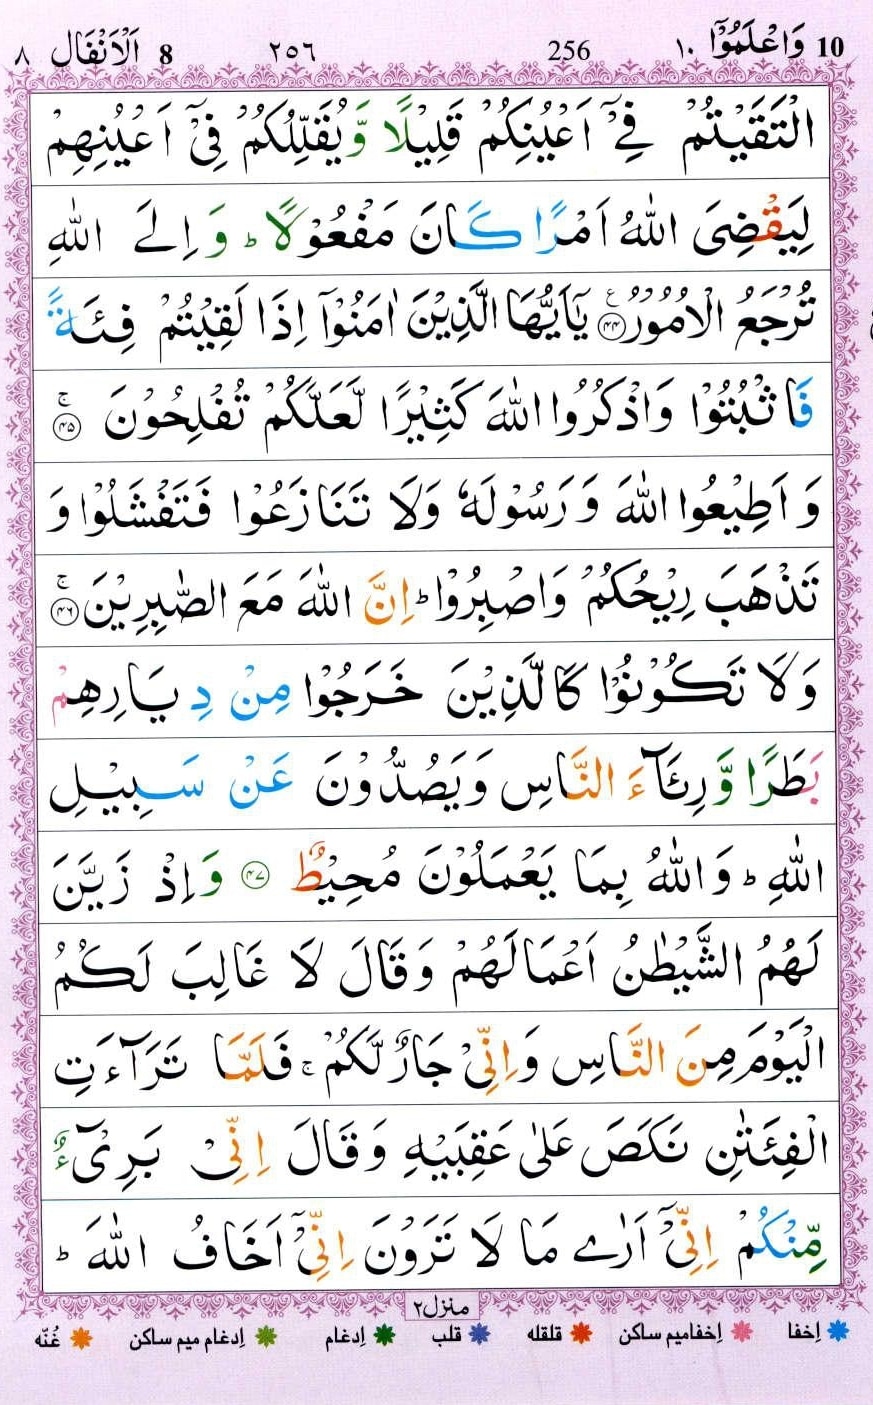 10 وَاعْلَمُوْۤا ١٠ 256 ٢٥٦ 8 اَلْاَنْفَال ٨
الْتَقَيْتُمْ فِيْۤ اَعْيُنِكُمْ قَلِيْلًا وَّيُقَلِّلُكُمْ فِيْۤ اَعْيُنِهِمْ
لِيَقْضِيَ اللّٰهُ اَمْرًا كَانَ مَفْعُوْلًا ؕ وَ اِلَي اللّٰهِ
تُرْجَعُ الْاُمُوْرُ ﴿۴۴﴾ ع يٰۤاَيُّهَا الَّذِيْنَ اٰمَنُوْۤا اِذَا لَقِيْتُمْ فِئَةً
فَاثْبُتُوْا وَاذْكُرُوا اللّٰهَ كَثِيْرًا لَّعَلَّكُمْ تُفْلِحُوْنَ ۚ﴿۴۵﴾
وَ اَطِيْعُوا اللّٰهَ وَ رَسُوْلَهٗ وَلَا تَنَازَعُوْا فَتَفْشَلُوْا وَ
تَذْهَبَ رِيْحُكُمْ وَاصْبِرُوْا ؕ اِنَّ اللّٰهَ مَعَ الصّٰبِرِيْنَ ۚ﴿۴۶﴾
وَلَا تَكُوْنُوْا كَالَّذِيْنَ خَرَجُوْا مِنْ دِيَارِهِمْ
بَطَرًا وَّ رِئَآءَ النَّاسِ وَيَصُدُّوْنَ عَنْ سَبِيْلِ
اللّٰهِ ؕ وَاللّٰهُ بِمَا يَعْمَلُوْنَ مُحِيْطٌ ﴿۴۷﴾ وَ اِذْ زَيَّنَ
لَهُمُ الشَّيْطٰنُ اَعْمَالَهُمْ وَقَالَ لَا غَالِبَ لَكُمُ
الْيَوْمَ مِنَ النَّاسِ وَاِنِّيْ جَارٌ لَّكُمْ ۚ فَلَمَّا تَرَآءَتِ
الْفِئَتٰنِ نَكَصَ عَلٰي عَقِبَيْهِ وَقَالَ اِنِّيْ بَرِيْٓءٌ
مِّنْكُمْ اِنِّيْۤ اَرٰي مَا لَا تَرَوْنَ اِنِّيْۤ اَخَافُ اللّٰهَ ؕ
منزل٢
اِخفا اِخفامیم ساکن قلقله قلب اِدغام اِدغام میم ساکن غُنّه